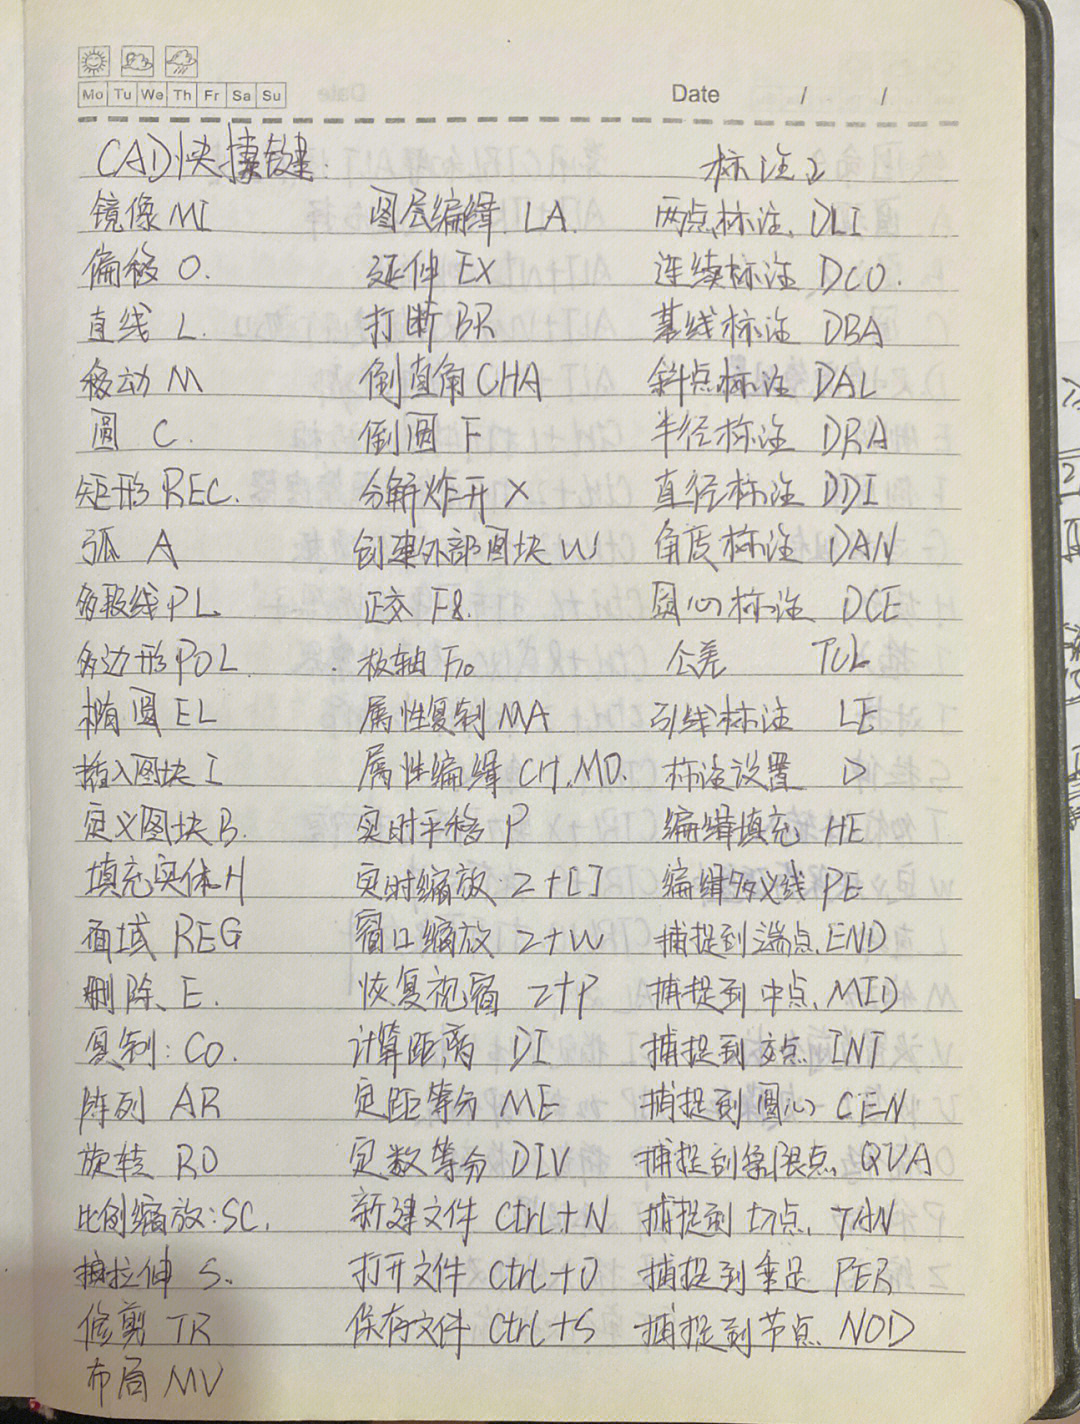 Mo Tu We Th Fr Sa Su
Date / /
CAD快捷键. 标注2
镜像 MI 图层编缉 LA. 两点标注. DLI
偏移 O. 延伸 EX 连续标注 DCO.
直线 L. 打断 BR 基线标注 DBA
移动 M 倒直角 CHA 斜点标注 DAL
圆 C. 倒圆 F 半径标注 DRA
矩形 REC. 分解炸开 X 直径标注 DDI
弧 A 创建外部图块 W 角度标注 DAN
多段线 PL. 正交 F8. 圆心标注 DCE
多边形 POL. 极轴 F10 公差 TCL
椭圆 EL 属性复制 MA 引线标注 LE
插入图块 I 属性编缉 CH.MO. 标注设置 D
定义图块 B. 实时平移 P 编缉填充 HE
填充实体 H 实时缩放: Z+[] 编缉多义线 PE
面域 REG 窗口缩放 Z+W 捕捉到端点. END
删除. E. 恢复视窗 Z+P 捕捉到中点. MID
复制: CO. 计算距离 DI 捕捉到交点. INT
阵列 AR 定距等分 ME 捕捉到圆心 CEN
旋转 RO 定数等分 DIV 捕捉到象限点. QUA
比例缩放: SC. 新建文件 Ctrl+N 捕捉到切点. TAN
拉伸 S. 打开文件 Ctrl+O 捕捉到垂足 PER
修剪 TR 保存文件 Ctrl+S 捕捉到节点 NOD
布局 MV